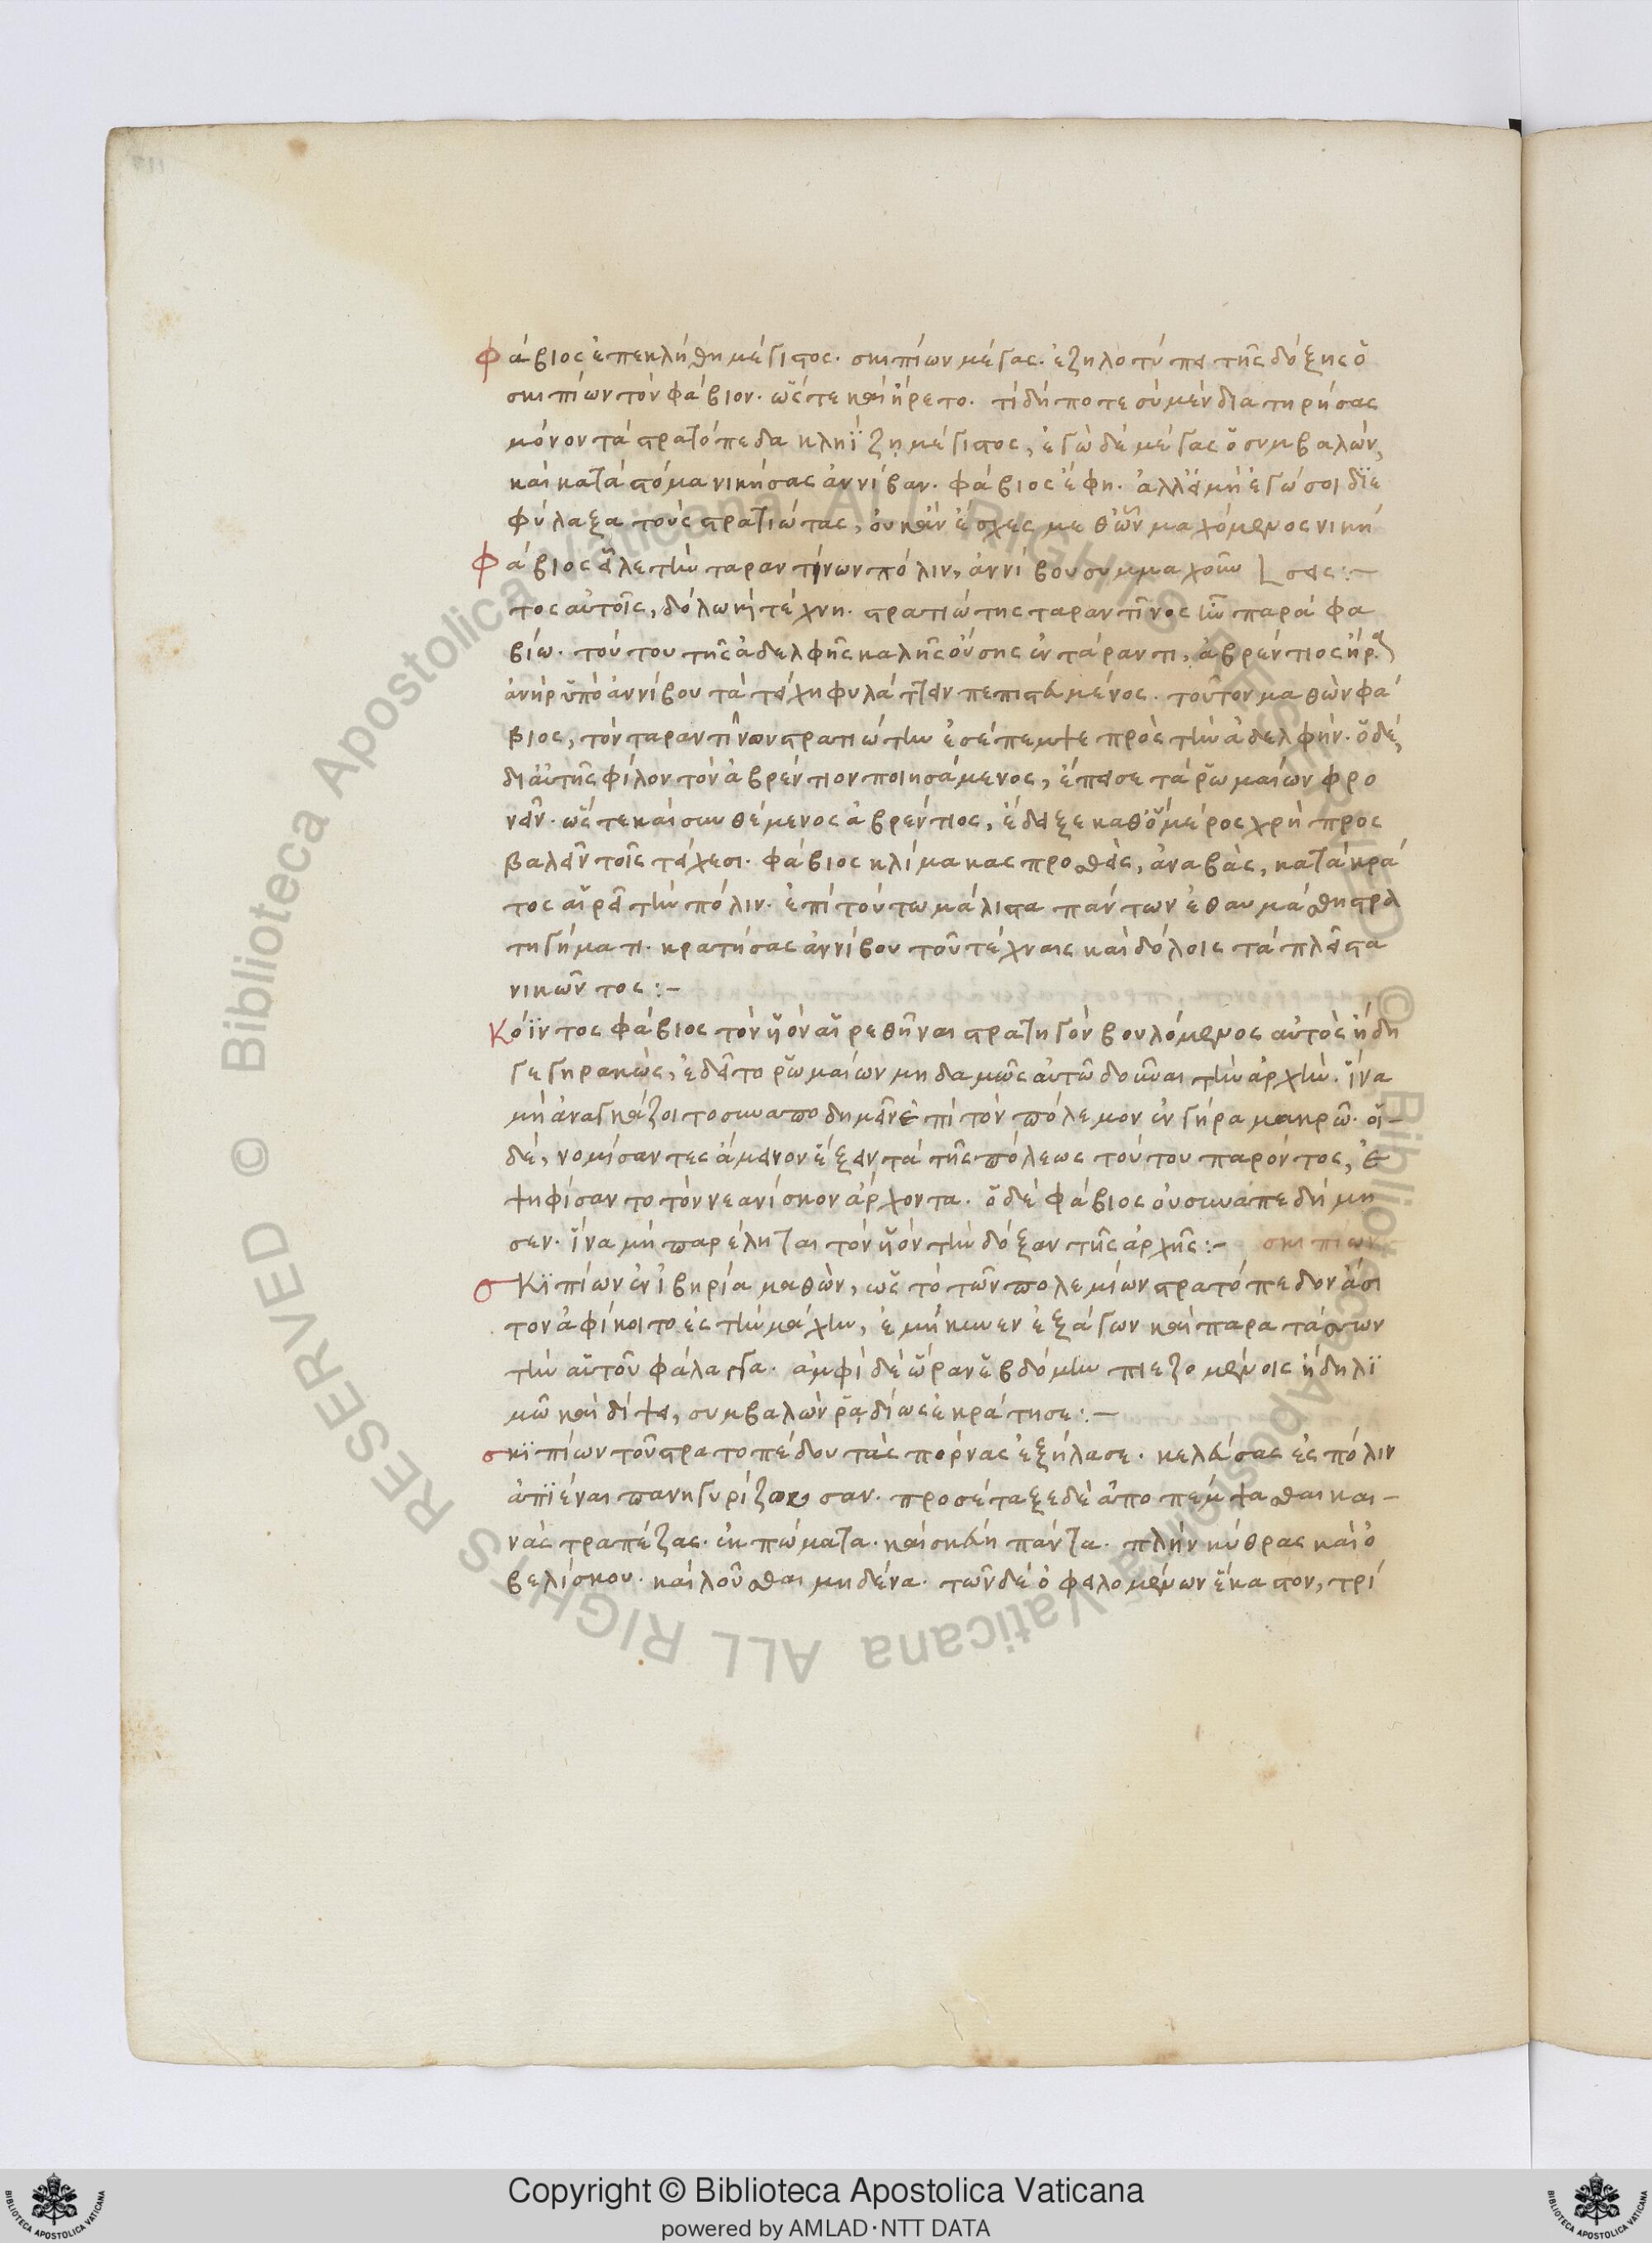 Φάβιος ἐπεκλήθη μέγιστος. σκιπίων μέγας. ἐζηλοτύπει τῆς δόξης ὁ
σκιπίων τὸν φάβιον. ὥστε καὶ ἤρετο. τί δήποτε σὺ μὲν διατηρήσας
μόνον τὰ στρατόπεδα κληΐζῃ μέγιστος, ἐγὼ δὲ μέγας ὁ συμβαλὼν,
καὶ κατὰ στόμα νικήσας ἀννίβαν. φάβιος ἔφη. ἀλλ' εἰ μὴ ἐγώ σοι διε
φύλαξα τοὺς στρατιώτας, οὐκ ἂν ἔσχες μεθ' ὧν μαχόμενος νική
Φάβιος εἷλε τὴν ταραντίνων πόλιν, ἀννίβου συμμαχοῦν [σεις:-
τος αὐτοῖς, δόλω καὶ τέχνη. στρατιώτης ταραντῖνος ἦν παρὰ φα
βίω. τούτου τῆς ἀδελφῆς καλῆς οὔσης ἐν τάραντι, ἀβρέντιος ἤρα
ἀνὴρ ὑπὸ ἀννίβου τὰ τείχη φυλάττειν πεπιστευμένος. τοῦτον μαθὼν φά
βιος, τὸν ταραντῖνον στρατιώτην ἐσέπεμψε πρὸς τὴν ἀδελφήν. ὁ δὲ,
δι' αὐτῆς φίλον τὸν ἀβρέντιον ποιησάμενος, ἔπεισε τὰ ῥωμαίων φρο
νεῖν. ὥστε καὶ συνθέμενος ἀβρέντιος, ἔδειξε καθ' ὃ μέρος χρὴ προς
βαλεῖν τοῖς τείχεσι. φάβιος κλίμακας προσθεὶς, ἀναβὰς, κατὰ κρά
τος αἱρεῖ τὴν πόλιν. ἐπὶ τούτω μάλιστα πάντων ἐθαυμάσθη στρα
τηγήματι. κρατήσας ἀννίβου τοῦ τέχναις καὶ δόλοις τὰ πλεῖστα
νικῶντος:-
Κόϊντος φάβιος τὸν υἱὸν αἱρεθῆναι στρατηγὸν βουλόμενος αὐτὸς ἤδη
γεγηρακὼς, ἐδεῖτο ῥωμαίων μηδαμῶς αὐτῶ δοῦναι τὴν ἀρχήν. ἵνα
μὴ ἀναγκάζοιτο συναποδημεῖν ἐπὶ τὸν πόλεμον ἐν γήρα μακρῶ. οἱ-
δὲ, νομίσαντες ἄμεινον ἕξειν τὰ τῆς πόλεως τούτου παρόντος, ἐ
ψηφίσαντο τὸν νεανίσκον ἄρχοντα. ὁ δὲ φάβιος οὐ συναπεδήμη
σεν. ἵνα μὴ παρέληται τὸν υἱὸν τὴν δόξαν τῆς ἀρχῆς:- σκιπίων
σκϊπίων ἐν ἰβηρία μαθὼν, ὡς τὸ τῶν πολεμίων στρατόπεδον ἄσι
τον ἀφίκοιτο ἐς τὴν μάχην, ἐμήκυνεν ἐξάγων καὶ παρατάττων
τὴν αὑτοῦ φάλαγγα. ἀμφὶ δὲ ὥραν ἑβδόμην πιεζομένοις ἤδη λϊ
μῶ καὶ δίψει, συμβαλὼν ῥαδίως ἐκράτησε:-
σκϊπίων τοῦ στρατοπέδου τὰς πόρνας ἐξήλασε. κελεύσας ἐς πόλιν
ἀπϊέναι πανηγυρίζουσαν. προσέταξε δὲ ἀποπέμψασθαι και-
νὰς τραπέζας. ἐκπώματα. καὶ σκεύη πάντα. πλὴν κύθρας καὶ ὀ
βελίσκου. καὶ λοῦσθαι μηδένα. τῶν δὲ ὀφειλομένων ἕκαστον, τρί
© Biblioteca Apostolica Vaticana ALL RIGHTS RESERVED
© Biblioteca Apostolica Vaticana ALL RIGHTS RESERVED
Copyright © Biblioteca Apostolica Vaticana
powered by AMLAD·NTT DATA
BIBLIOTECA APOSTOLICA VATICANA
BIBLIOTECA APOSTOLICA VATICANA